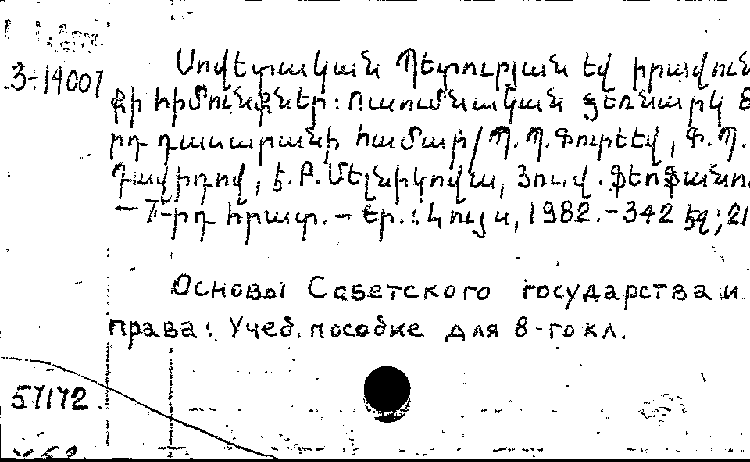 3-14007
Սովետական Պետության եվ իրավուն
քի հիմունքներ: Ուսումնական ձեռնարկ 8
րդ դասարանի համար/Պ.Պ.Գուրեեվ, Փ.Պ.
Դավիդով, Ե.Բ.Մելնիկովա, Յու.վ.Ֆեոֆանո
–7-րդ հրատ.– Եր.: Լույս, 1982.–342 էջ; 21
Основы Советского государства и
права: Учеб. пособие для 8-го кл.
57172.